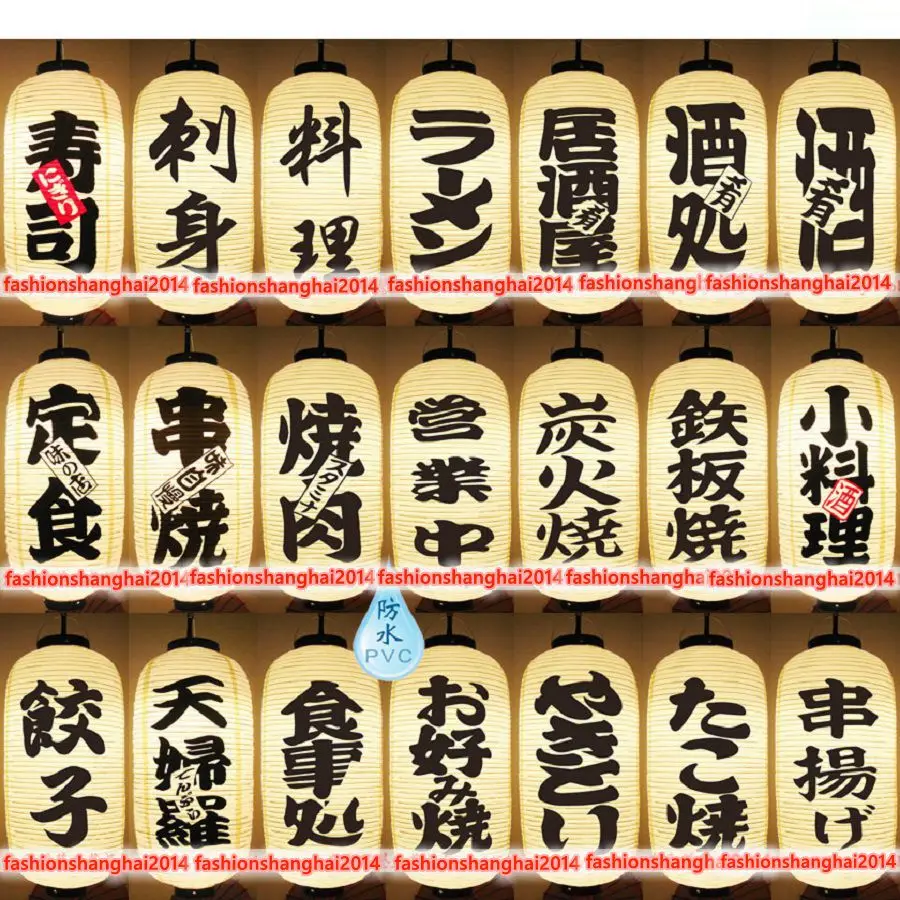 寿司
にぎり
刺身
料理
ラーメン
居酒屋
肴
酒処
肴
酒旧
肴
fashionshanghai2014 fashionshanghai2014 fashionshanghai2014 fashionshangha fashionshanghai2014
定食
味の店
串焼
味自慢
焼肉
スタミナ
営業中
炭火焼
鉄板焼
小料理
酒
fashionshanghai2014 fashionshanghai2014 fashionshanghai2014 fashionshangha fashionshanghai2014
防水
PVC
餃子
天婦羅
てんぷら
食事処
お好み焼
やきとり
たこ焼
串揚げ
fashionshanghai2014 fashionshanghai2014 fashionshanghai2014 fashionshangha fashionshanghai2014